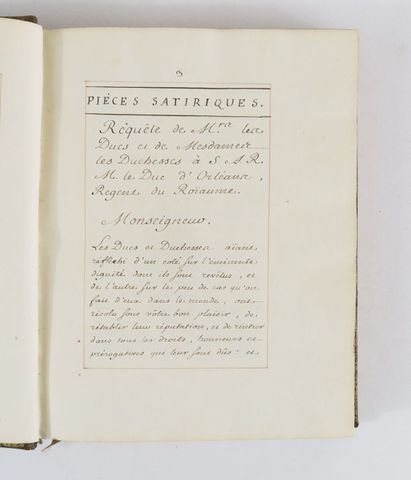 3
PIÉCES SATIRIQUES.
Réquête de M.rs les
Ducs et de Mesdames
les Duchesses à S A R
M. le Duc d'Orléans,
Regent du Roïaume.
Monseigneur.
Les Ducs et Duchesses aïant
réflechi d'un coté sur l'eminente
dignité dont ils sont revêtus, et
de l'autre sur le peu de cas qu'on
fait d'eux dans le monde, ont
résolu sous vôtre bon plaisir, de
rétablir leur réputation, et de rentrer
dans tous les droits, honneurs et
prérogatives qui leur sont dûs: et